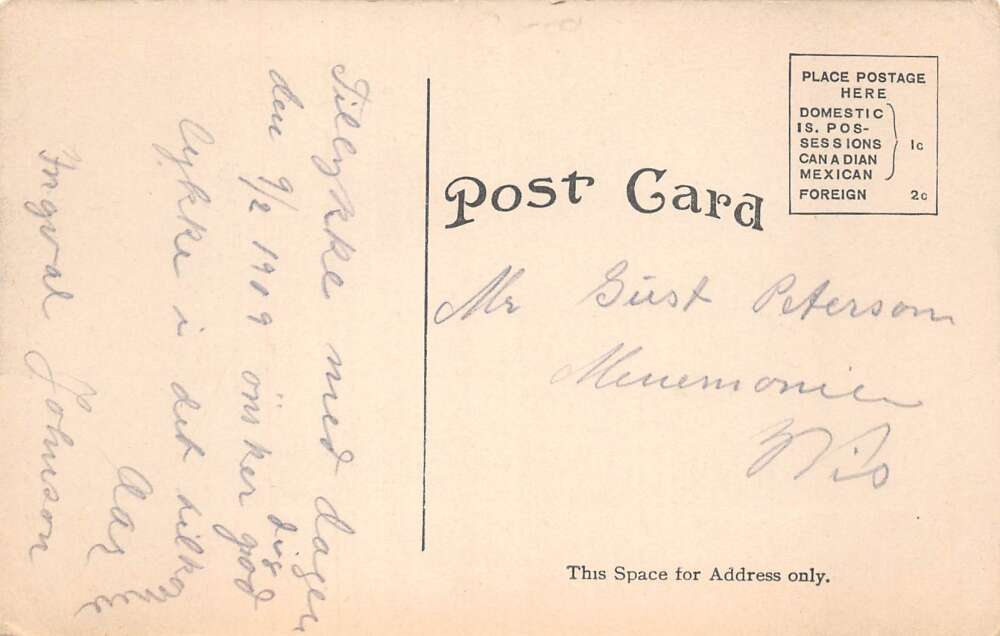 Tillykke med dagen
den 9/2 1909 önsker dig god
lykke i det tilko
Aar
Ingval Johnson
Post Card
PLACE POSTAGE
HERE
DOMESTIC
IS. POS-
SESSIONS
CANADIAN
MEXICAN
1c
FOREIGN 2c
Mr Gust Peterson
Menemonie
Wis
This Space for Address only.